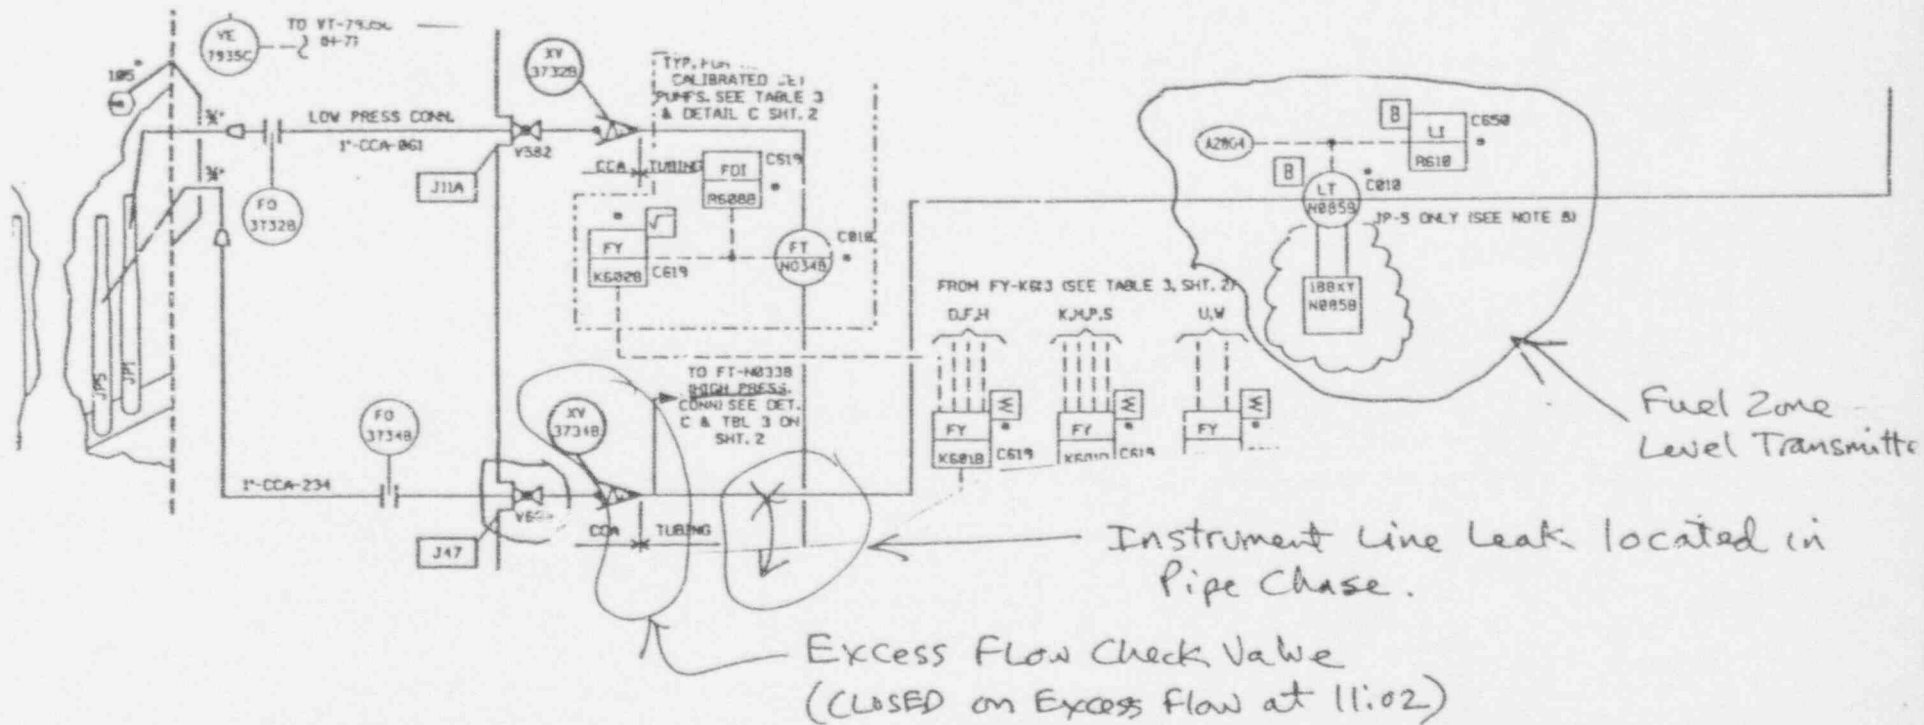 TO VT-7935C
04-71
YE
7935C
105°
¾"
¾"
LOW PRESS CONN.
1"-CCA-061
FO
3732B
J11A
V582
XV
3732B
TYP. FOR
CALIBRATED JET
PUMPS. SEE TABLE 3
& DETAIL C SHT. 2
CCA TUBING
FDI
R608B
C619
FY
K602B
√
C619
FT
N034B
C018
JP5
JP1
FO
3734B
1"-CCA-234
J47
XV
3734B
TO FT-N033B
(HIGH PRESS.
CONN) SEE DET.
C & TBL 3 ON
SHT. 2
CCA TUBING
FROM FY-K613 (SEE TABLE 3, SHT. 2)
D,F,H
K,M,P,S
U,W
FY
K601B
W
C619
FY
W
C619
FY
W
B
LI
R610
C650
B
LT
N085B
C010
JP-5 ONLY (SEE NOTE 8)
188XY
N085B
Fuel Zone
Level Transmitte
Instrument Line Leak located in
Pipe Chase.
Excess Flow Check Valve
(CLOSED on Excess Flow at 11:02)